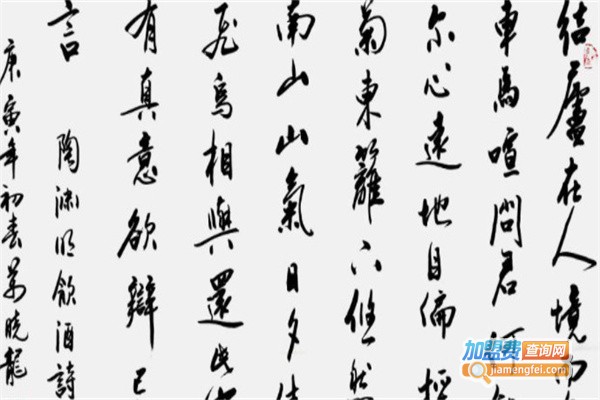 結廬在人境而
車馬喧問君何
尔心遠地自偏採
菊東籬下悠然
南山山氣日夕佳
飛鳥相與還此
有真意欲辯已
言 陶淵明飲酒詩
庚寅年初春萬曉龍
加盟费查询网
jiamengfei.com